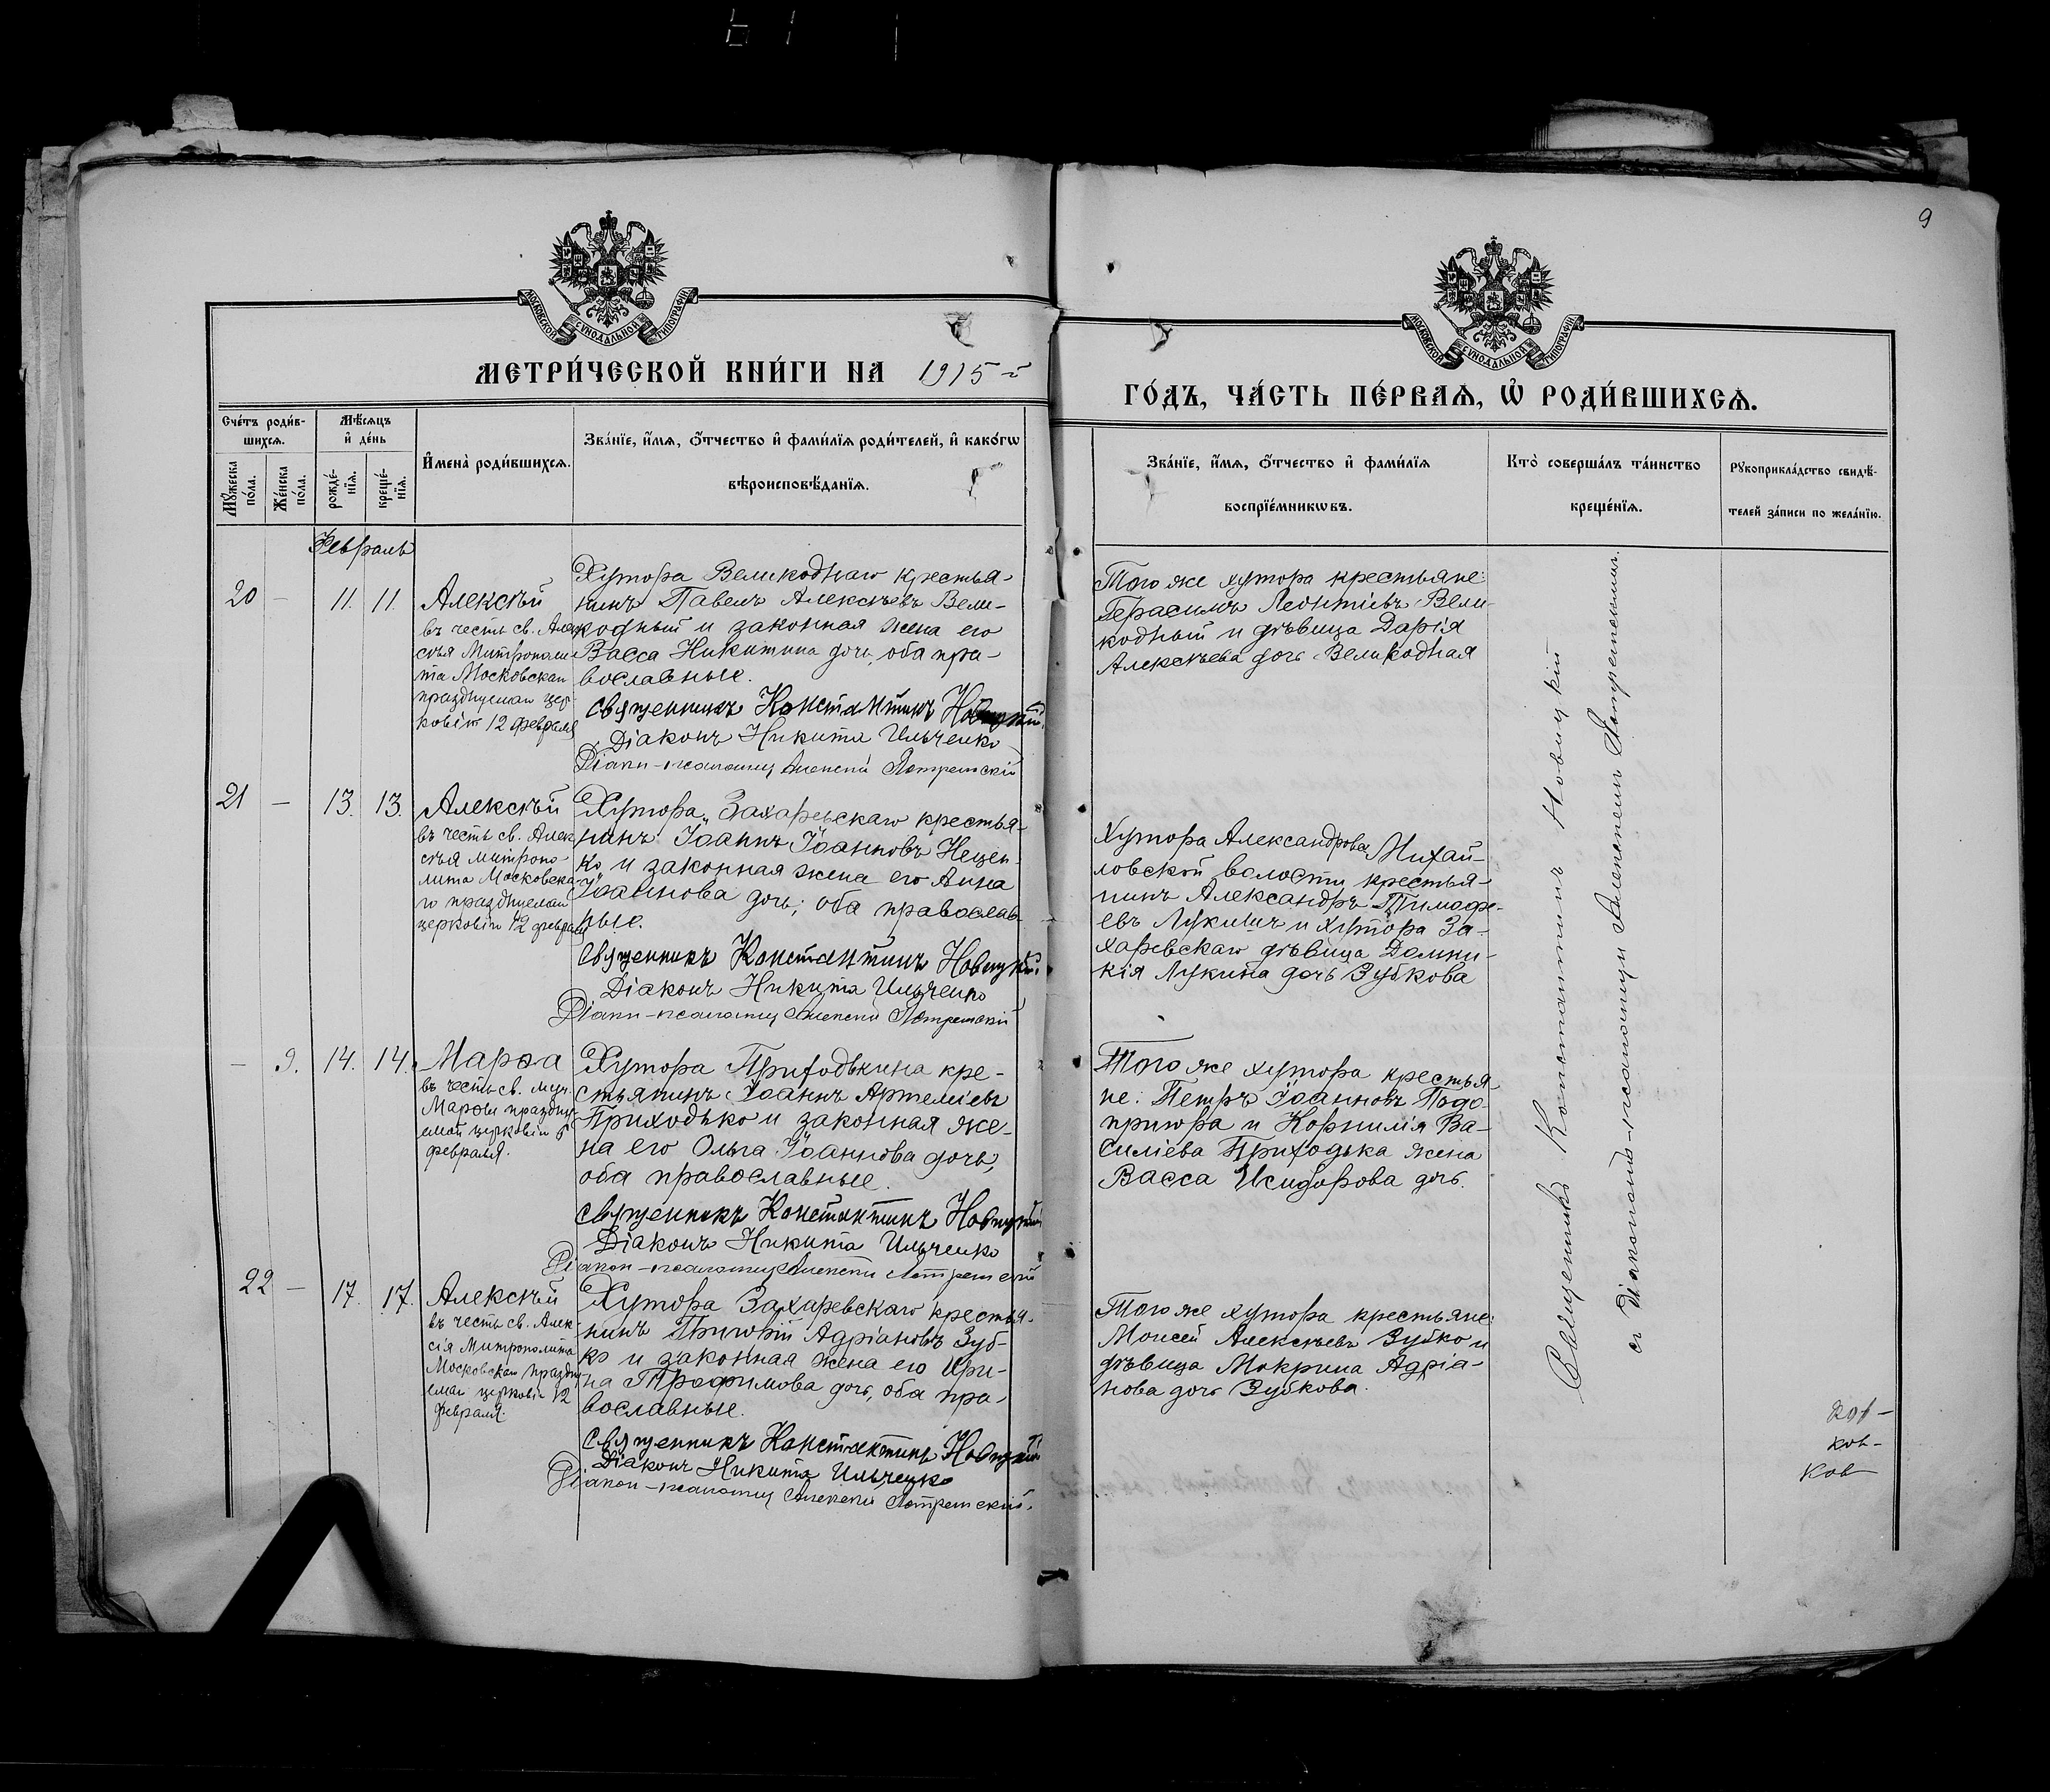 9
МОСКОВСКОЙ СУНОДАЛЬНОЙ ТИПОГРАФІИ
МОСКОВСКОЙ СУНОДАЛЬНОЙ ТИПОГРАФІИ
МЕТРИ́ЧЕСКОЙ КНИ́ГИ НА 1915-й
ГО́ДЪ, ЧА́СТЬ ПЕ́РВАѦ, Ѽ РОДИ́ВШИХСѦ.
Сче́тъ роди́в-
шихсѧ.
Мꙋ́жеска по́ла.
Же́нска по́ла.
Мѣ́сѧцъ
и҆ де́нь
рожде́-
нїѧ.
креще́-
нїѧ.
И҆мена̀ роди́вшихсѧ.
Зва́нїе, и҆́мѧ, ѻ҆́тчество и҆ фами́лїѧ роди́телей, и҆ како́гѡ
вѣроисповѣ́данїѧ.
Зва́нїе, и҆́мѧ, ѻ҆́тчество и҆ фами́лїѧ
воспрїе́мникѡвъ.
Кто̀ соверша́лъ та́инство
креще́нїѧ.
Рꙋкоприкла́дство свидѣ́-
телей за́писи по жела́нїю.
Февраль
20 – 11. 11.
Алексѣй
въ честь св. Алек
сѣя Митрополи
та Московскаго
празднуемаго цер
ковію 12 февраля
Хутора Великоднаго крестья-
нинъ Павелъ Алексѣевъ Вели-
кодный и законная жена его
Васса Никитина дочь, оба пра-
вославные.
Священникъ Константинъ Новицкій.
Діаконъ Никита Ильченко
Діакон-псаломщ Алексѣй
Того же хутора крестьяне:
Герасимъ Леонтіевъ Вели-
кодный и дѣвица Дарія
Алексѣева дочь Великодная
21 – 13. 13.
Алексѣй
въ честь св. Алек
сѣя митропо-
лита Московска-
го празднуемаго
церковію 12 февраля
Хутора Захаревскаго крестья-
нинъ Іоаннъ Іоанновъ Нецен-
ко и законная жена его Анна
Іоаннова дочь; оба православ-
ные.
Священникъ Константинъ Новицкій.
Діаконъ Никита Ильченко
Діакон-псаломщ Алексѣй
Хутора Александрова Михай-
ловской волости крестья-
нинъ Александръ Тимофе-
евъ Лукичъ и хутора За-
харевскаго дѣвица Домни-
кія Лукина дочь Зубкова
– 9. 14. 14.
Марѳа
въ честь св. муч.
Марѳы праздну-
емой церковію 6
февраля.
Хутора Приходькина кре-
стьянинъ Іоаннъ Артеміевъ
Приходько и законная же-
на его Ольга Іоаннова дочь,
оба православные.
Священникъ Константинъ Новицкій
Діаконъ Никита Ильченко
Діакон-псаломщ Алексѣй
Того же хутора крестья-
не: Петръ Іоанновъ Подо-
пригора и Корнилія Ва-
силіева Приходька жена
Васса Исидорова дочь.
22 – 17. 17.
Алексѣй
въ честь св. Алек-
сія Митрополита
Московскаго праздну
емаго церковію 12
февраля.
Хутора Захаревскаго крестья-
нинъ Григорій Адріановъ Зуб-
ко и законная жена его Ири-
на Трофимова дочь, оба пра-
вославные.
Священникъ Константинъ Новицкій
Діаконъ Никита Ильченко
Діакон-псаломщ Алексѣй
Того же хутора крестьяне:
Моисей Алексѣевъ Зубко и
дѣвица Мокрина Адріа-
нова дочь Зубкова.
Священникъ Константинъ Новицкій
съ діакономъ-псаломщи Алексѣемъ
ков-
ков